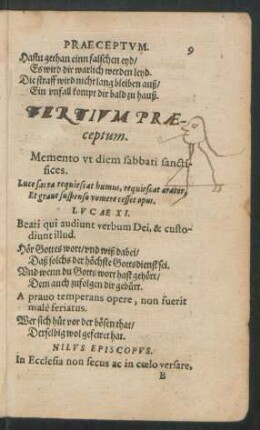 PRAECEPTVM. 9
Hastu gethan einn falschen eyd/
Es wird dir warlich werden leyd.
Die straff wird nicht lang bleiben auß/
Ein vnfall kompt dir bald zu hauß.
TERTIVM PRÆ-
ceptum.
Memento vt diem sabbati sancti-
fices.
Luce sacra requiescat humus, requiescat arator,
Et graue suspenso vomere cesset opus.
LVCAE XI.
Beati qui audiunt verbum Dei, & custo-
diunt illud.
Hör Gottes wort/ vnd wiß dabei/
Daß solchs der höchste Gottsdienst sei.
Vnd wenn du Gotts wort hast gehört/
Dem auch zufolgen dir gebürt.
A prauo temperans opere, non fuerit
male feriatus.
Wer sich hüt vor der bösen that/
Derselbig wol gefeiret hat.
NILVS EPISCOPVS.
In Ecclesia non secus ac in cœlo versare,
B